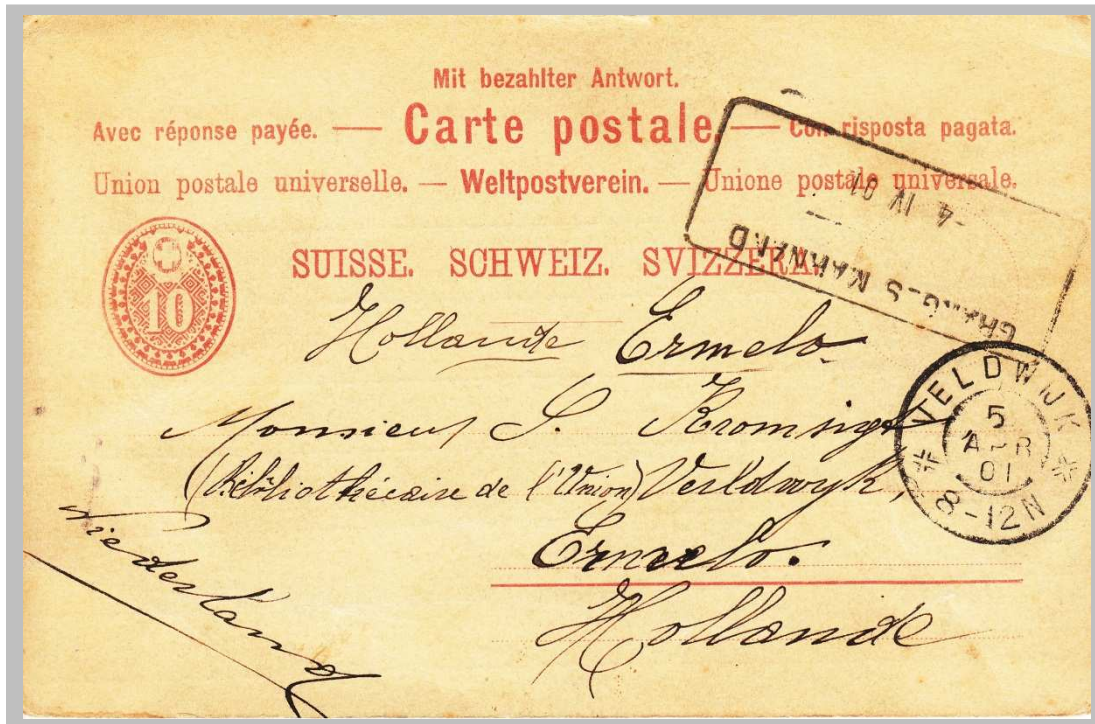 Mit bezahlter Antwort.
Avec réponse payée. — Carte postale. — Con risposta pagata.
Union postale universelle. — Weltpostverein. — Unione postale universale.
-4 IV 01
10
SUISSE. SCHWEIZ. SVIZZERA.
Hollande Ermelo
Monsieur S. Kromsigt
(Bibliothécaire de l'Union) Veildwyk,
Ermelo.
Hollande
Niederland
VELDWIJK
5
APR
01
8-12N